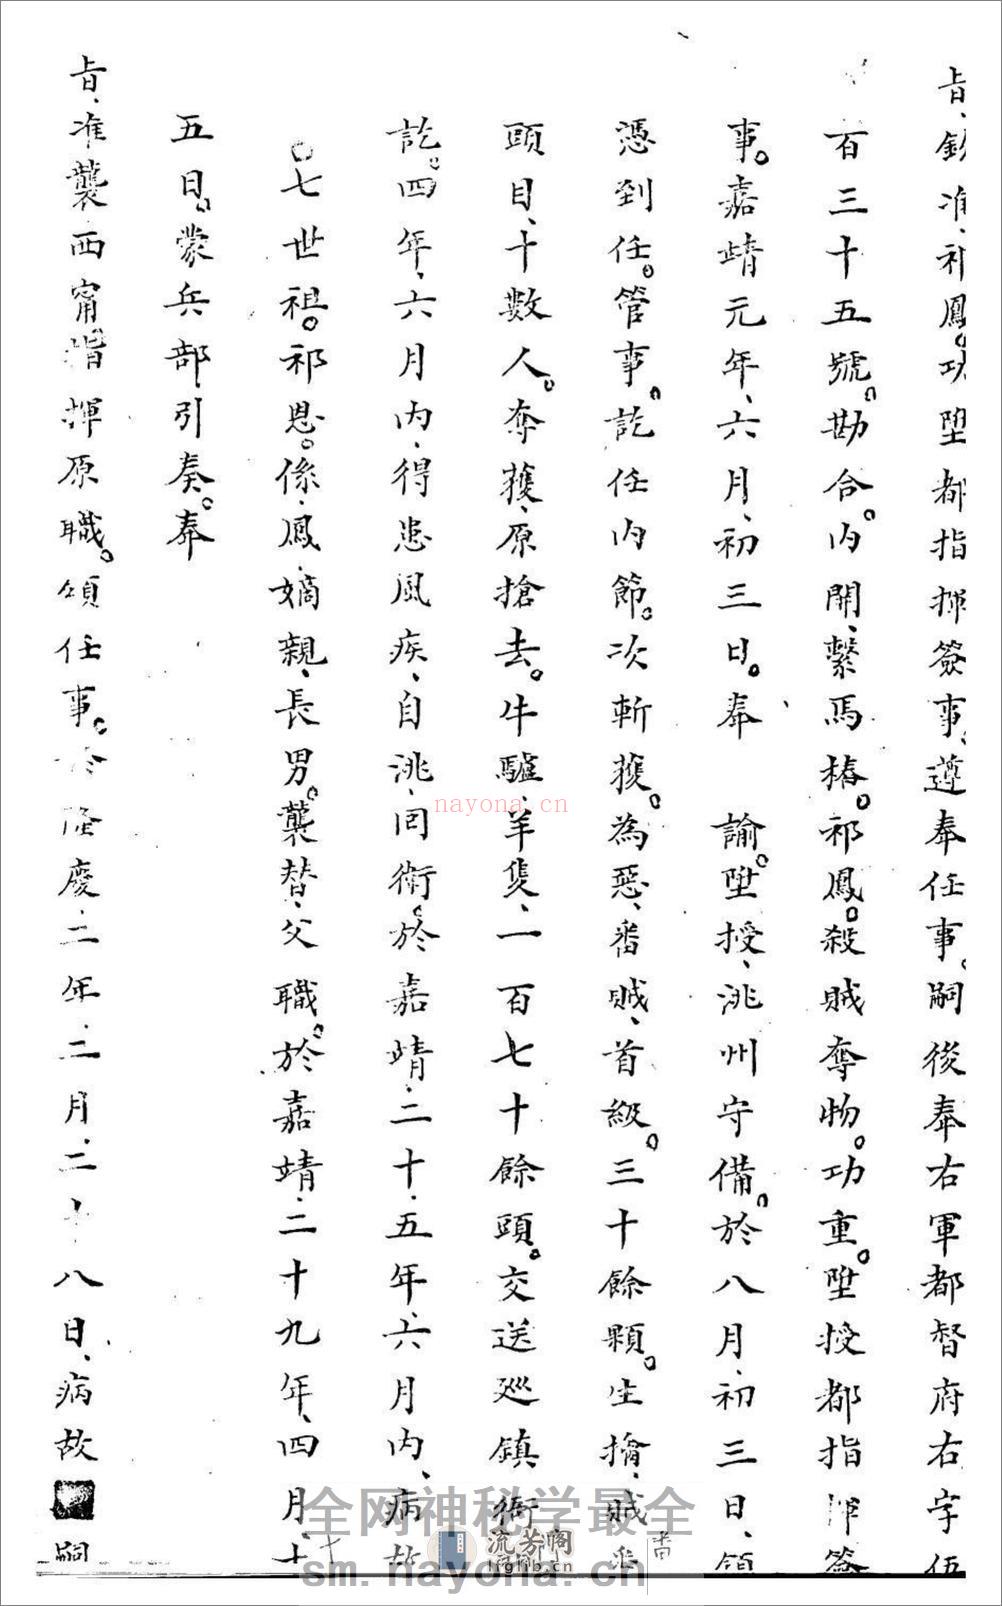 旨、欽准、祁鳳。功陞都指揮簽事、遵奉任事。嗣後奉右軍都督府右字伍
百三十五號。勘合。內開、繫馬樁。祁鳳。殺賊奪物。功重。陞授都指揮簽
事。嘉靖元年、六月、初三日。奉 諭。陞授、洮州守備。於八月、初三日、領
憑到任。管事。訖任內節。次斬獲。為惡、番賊、首級。三十餘顆。生擒、賊番
頭目、十數人。奪獲、原搶去。牛驢、羊隻、一百七十餘頭。交送廵鎮衙
訖。四年、六月內、得患風疾、自洮、囘衛。於嘉靖、二十、五年、六月內、病故
○七世祖。祁恩。係、鳳、嫡親、長男。襲替、父職。於嘉靖、二十九年、四月、十
五日。蒙兵部、引奏。奉
旨、准襲西甯指揮原職。領任事。於隆慶、二年、二月、二十八日、病故 嗣
nayona.cn
全网神秘学最全
流芳阁
lfglib.cn
sm.nayona.cn